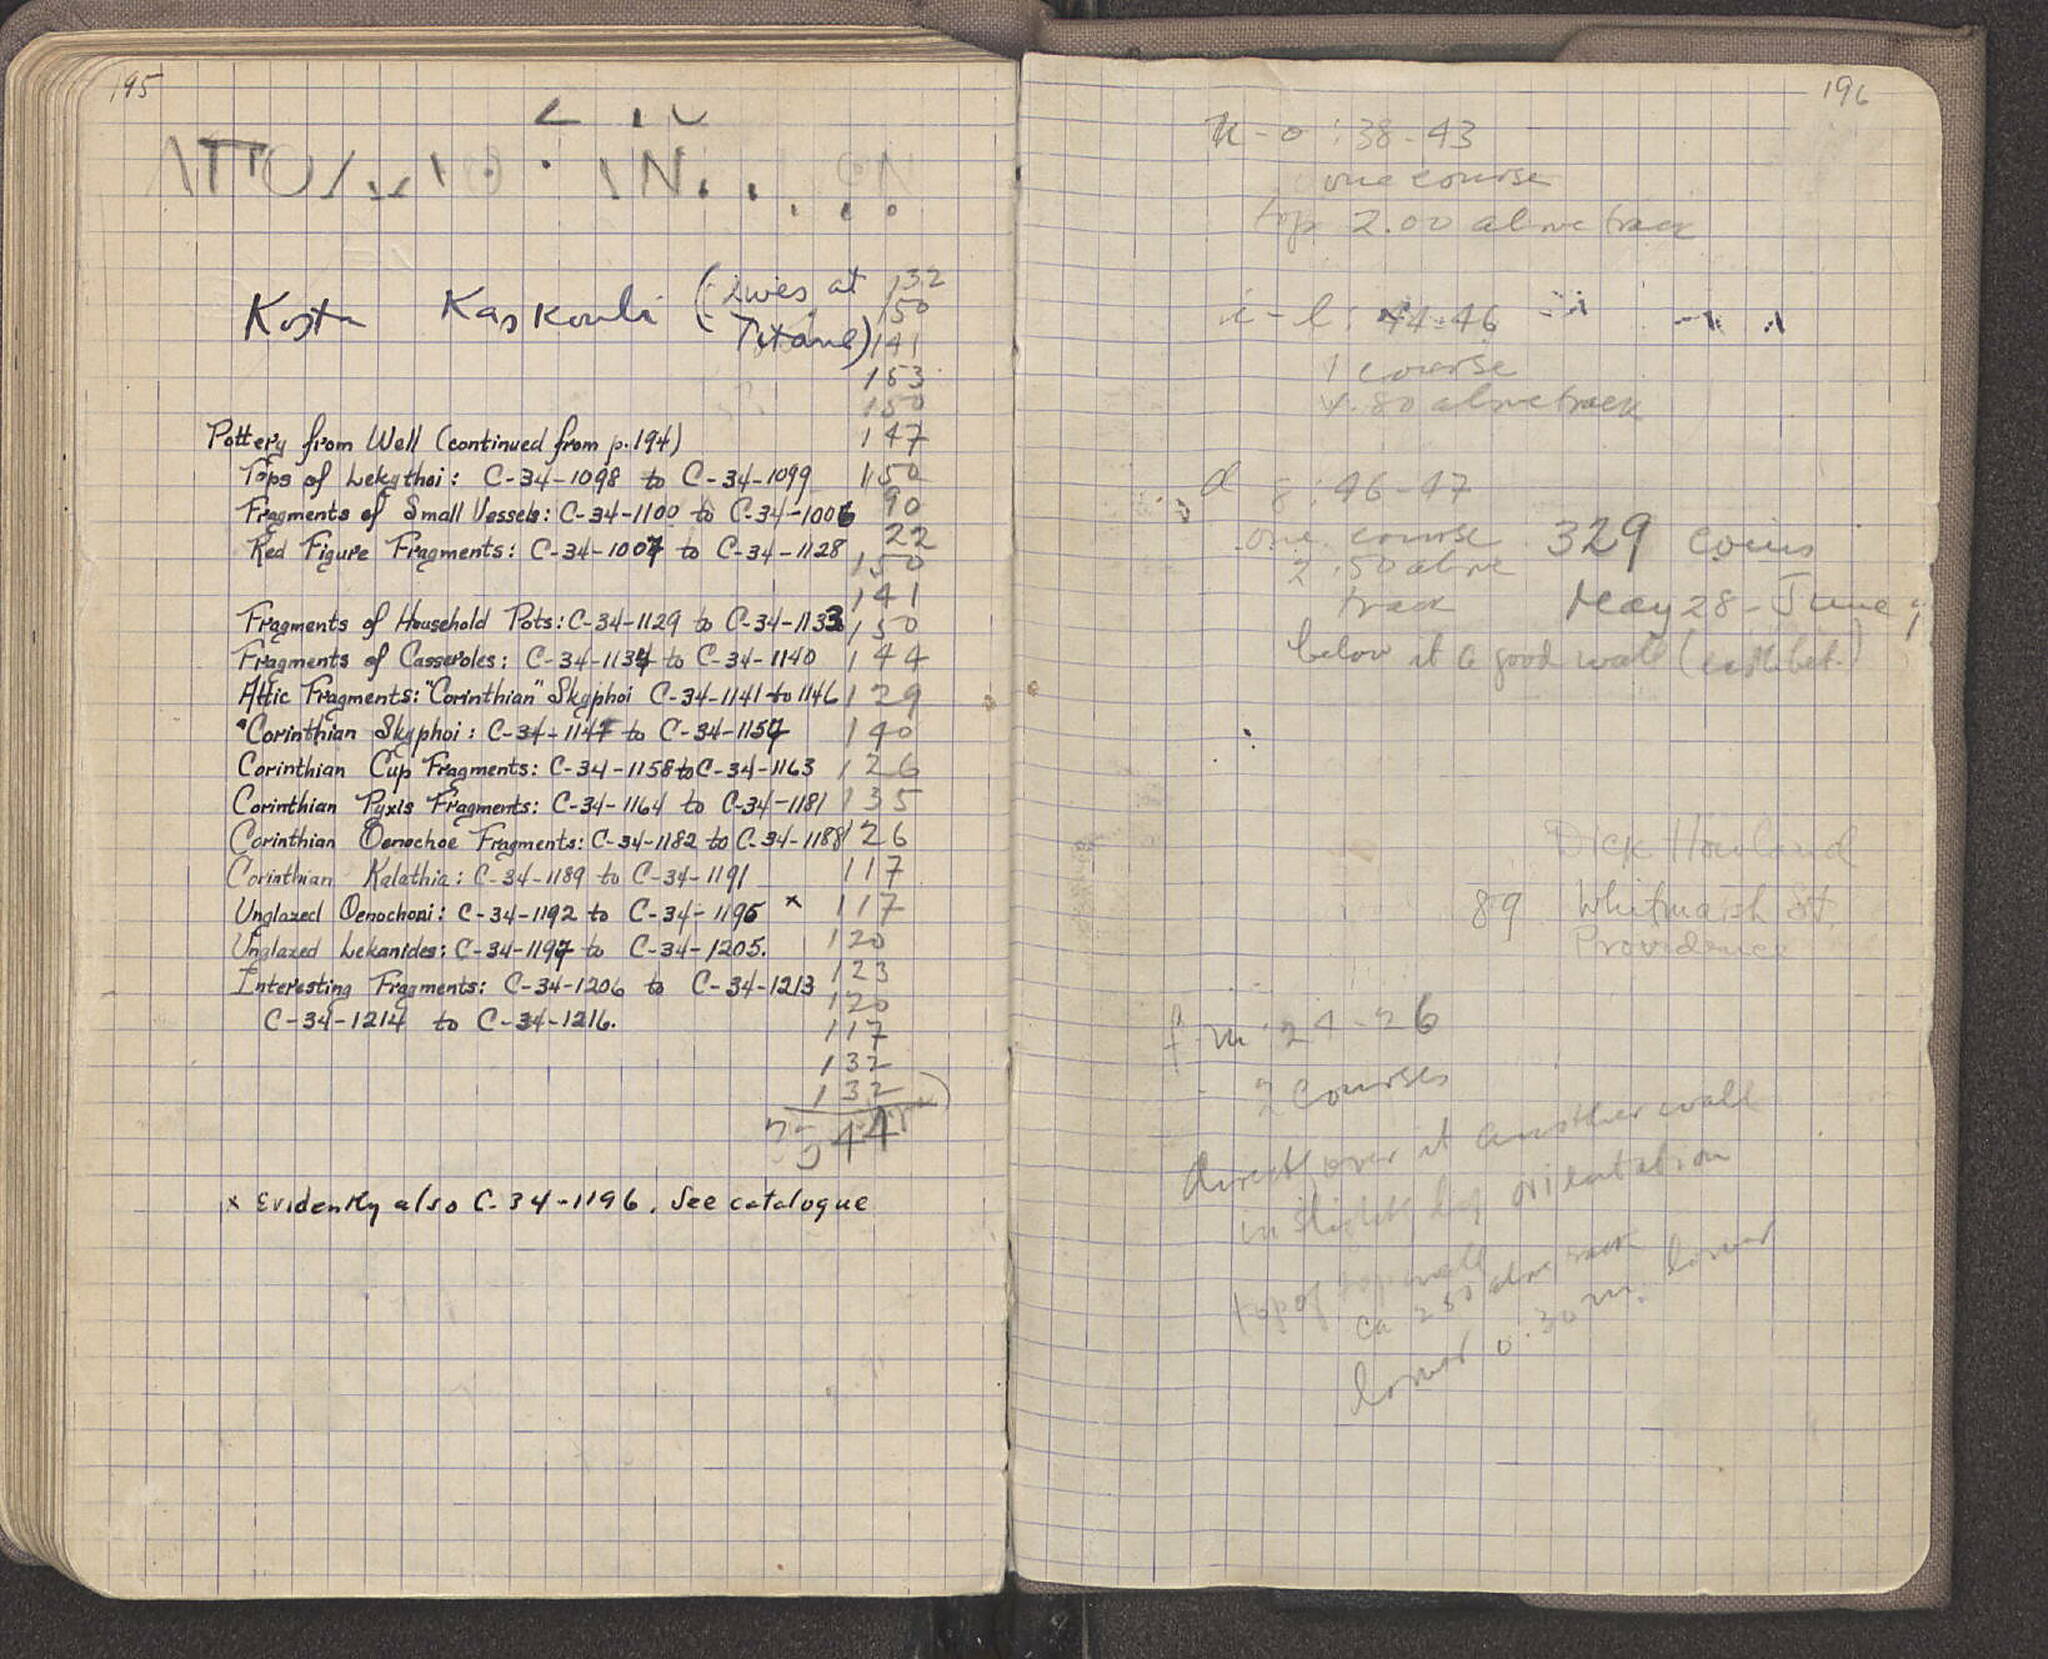 195
Kosta Kaskouli (Lives at
Titane)
132
150
141
153
150
147
150
90
22
150
141
150
144
129
140
126
135
126
117
117
120
123
120
117
132
132
Pottery from Well (continued from p.194)
Tops of Lekythoi: C-34-1098 to C-34-1099
Fragments of Small Vessels: C-34-1100 to C-34-1006
Red Figure Fragments: C-34-1007 to C-34-1128
Fragments of Household Pots: C-34-1129 to C-34-1133
Fragments of Casseroles: C-34-1134 to C-34-1140
Attic Fragments: "Corinthian" Skyphoi C-34-1141 to 1146
Corinthian Skyphoi: C-34-1147 to C-34-1157
Corinthian Cup Fragments: C-34-1158 to C-34-1163
Corinthian Pyxis Fragments: C-34-1164 to C-34-1181
Corinthian Oenochoe Fragments: C-34-1182 to C-34-1188
Corinthian Kalathia: C-34-1189 to C-34-1191
Unglazed Oenochoai: C-34-1192 to C-34-1195 x
Unglazed Lekanides: C-34-1197 to C-34-1205.
Interesting Fragments: C-34-1206 to C-34-1213
C-34-1214 to C-34-1216.
x Evidently also C-34-1196. See catalogue
196
k-o: 38-43
one course
top 2.00 above track
i-l: 44-46
1 course
above track
: 46-47
one course
2.50 above
track
below it a good wall
329 coins
May 28 - June
Dick Howland
89 Whitmarsh St.
Providence
f-m: 24-26
2 courses
directly over it another wall
in slightly orientation
top of top wall
ca 2.50 above track
lower 0.30 m. lower